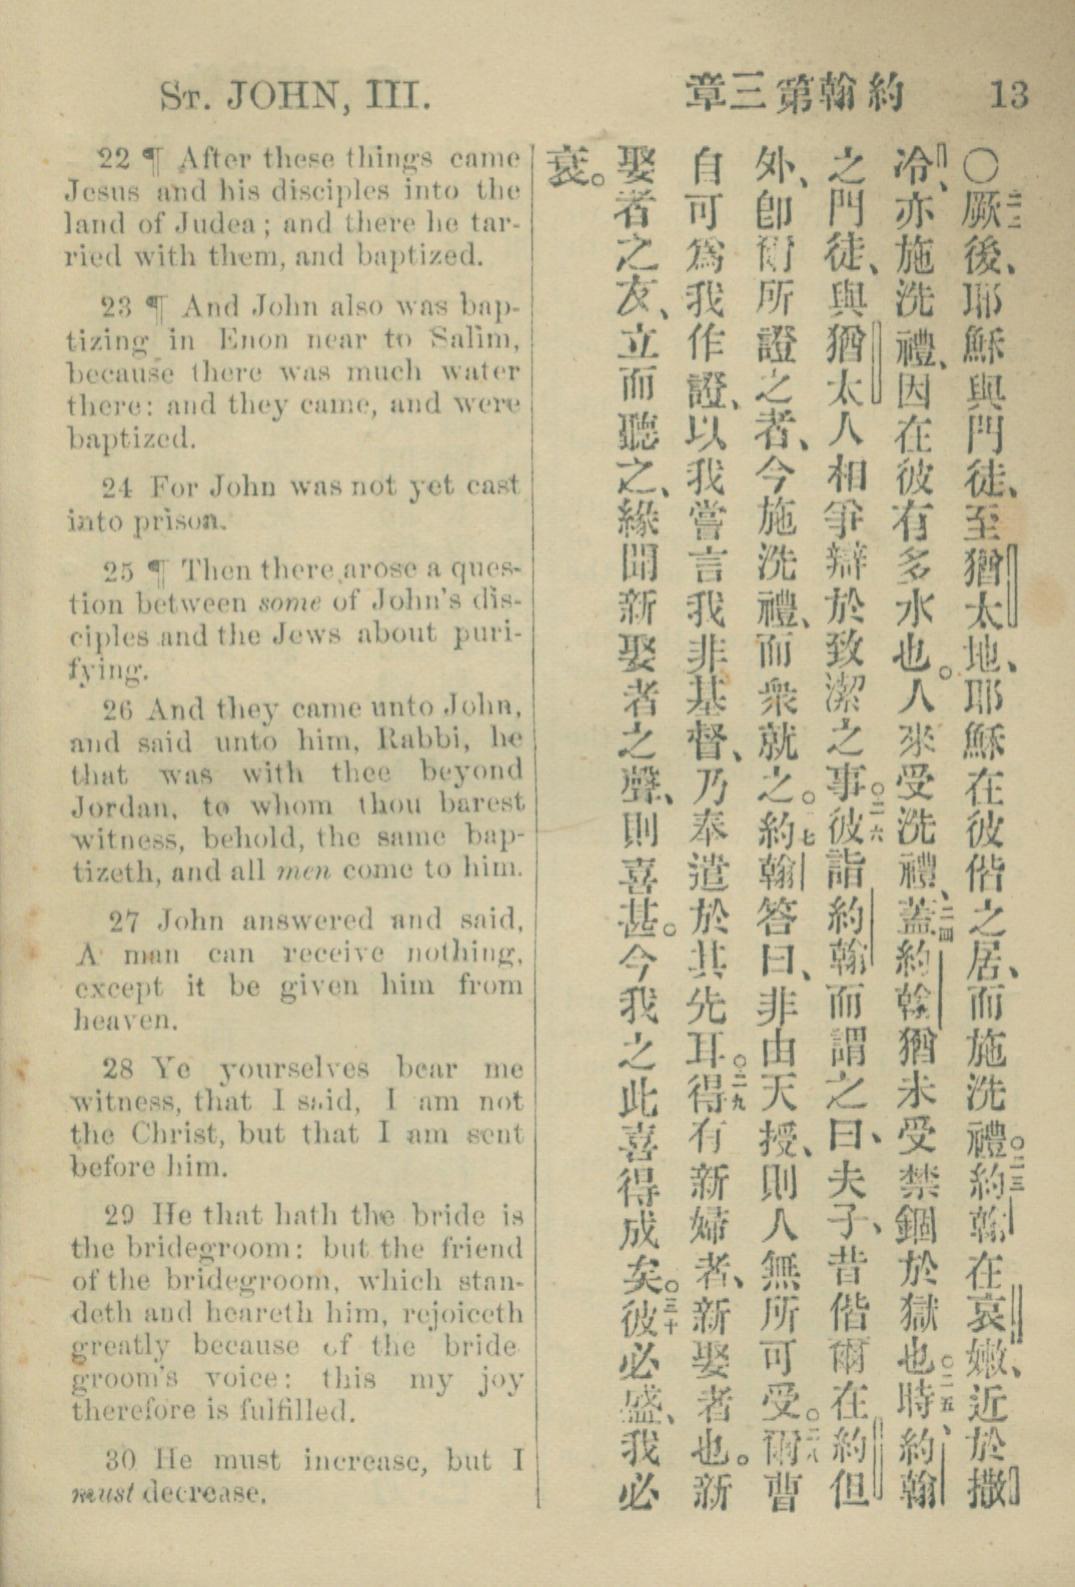 St. JOHN, III.
章三第翰約
13
22 ¶ After these things came
Jesus and his disciples into the
land of Judea; and there he tar-
ried with them, and baptized.
23 ¶ And John also was bap-
tizing in Enon near to Salim,
because there was much water
there: and they came, and were
baptized.
24 For John was not yet cast
into prison.
25 ¶ Then there arose a ques-
tion between some of John's dis-
ciples and the Jews about puri-
fying.
26 And they came unto John,
and said unto him, Rabbi, he
that was with thee beyond
Jordan, to whom thou barest
witness, behold, the same bap-
tizeth, and all men come to him.
27 John answered and said,
A man can receive nothing,
except it be given him from
heaven.
28 Ye yourselves bear me
witness, that I said, I am not
the Christ, but that I am sent
before him.
29 He that hath the bride is
the bridegroom: but the friend
of the bridegroom, which stan-
deth and heareth him, rejoiceth
greatly because of the bride
groom's voice: this my joy
therefore is fulfilled.
30 He must increase, but I
must decrease.
〇二二厥後、耶穌與門徒、至猶太地、耶穌在彼偕之居、而施洗禮。二三約翰在哀嫩、近於撒
冷、亦施洗禮、因在彼有多水也。人來受洗禮、二四蓋約翰猶未受禁錮於獄也。二五時、約翰
之門徒、與猶太人相爭辯於致潔之事。二六彼詣約翰而謂之曰、夫子、昔偕爾在約但
外、卽爾所證之者、今施洗禮、而衆就之。七約翰答曰、非由天授、則人無所可受。二八爾曹
自可爲我作證、以我嘗言我非基督、乃奉遣於其先耳。二九得有新婦者、新娶者也。新
娶者之友、立而聽之、緣聞新娶者之聲、則喜甚。今我之此喜得成矣。三十彼必盛、我必
衰。